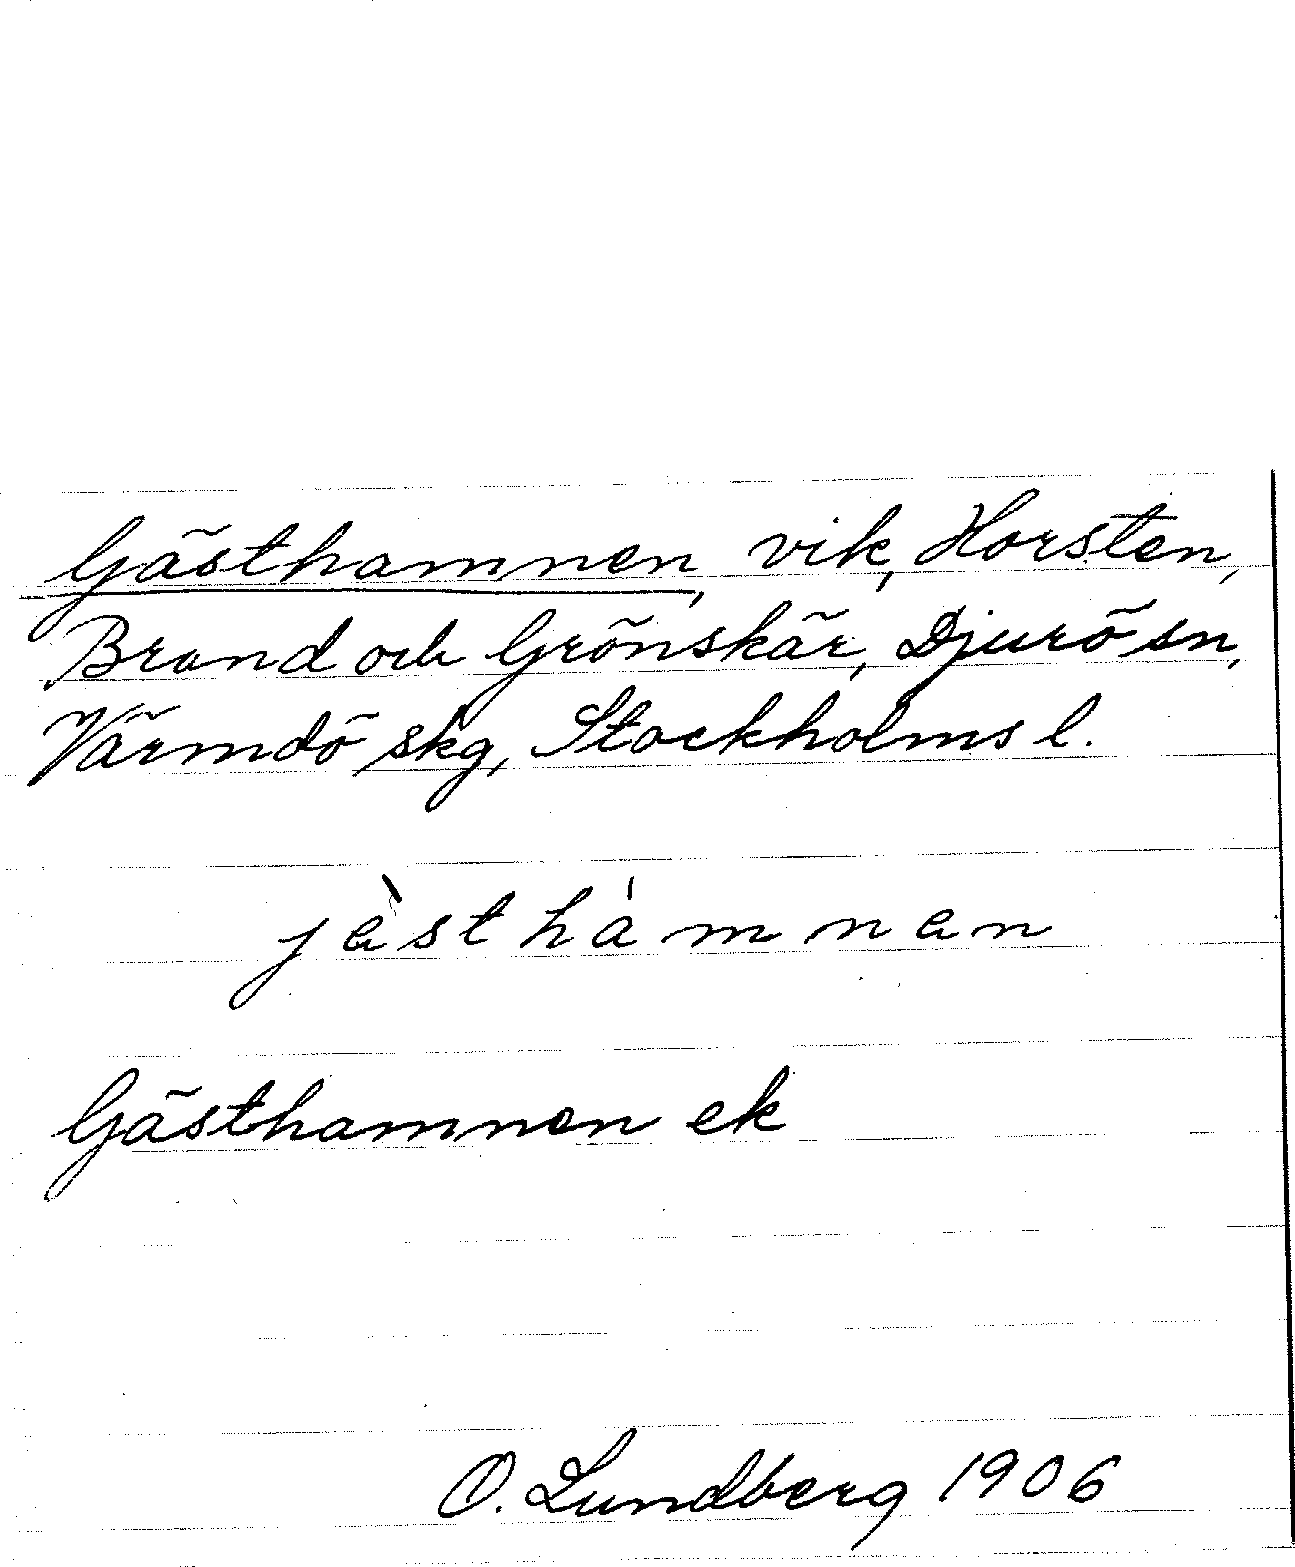 Gästhamnen, vik, Horsten,
Brand och Grönskär, Djurö sn,
Värmdö skg, Stockholms l.
jèsthámnen
Gästhamnen ek
O. Lundberg 1906